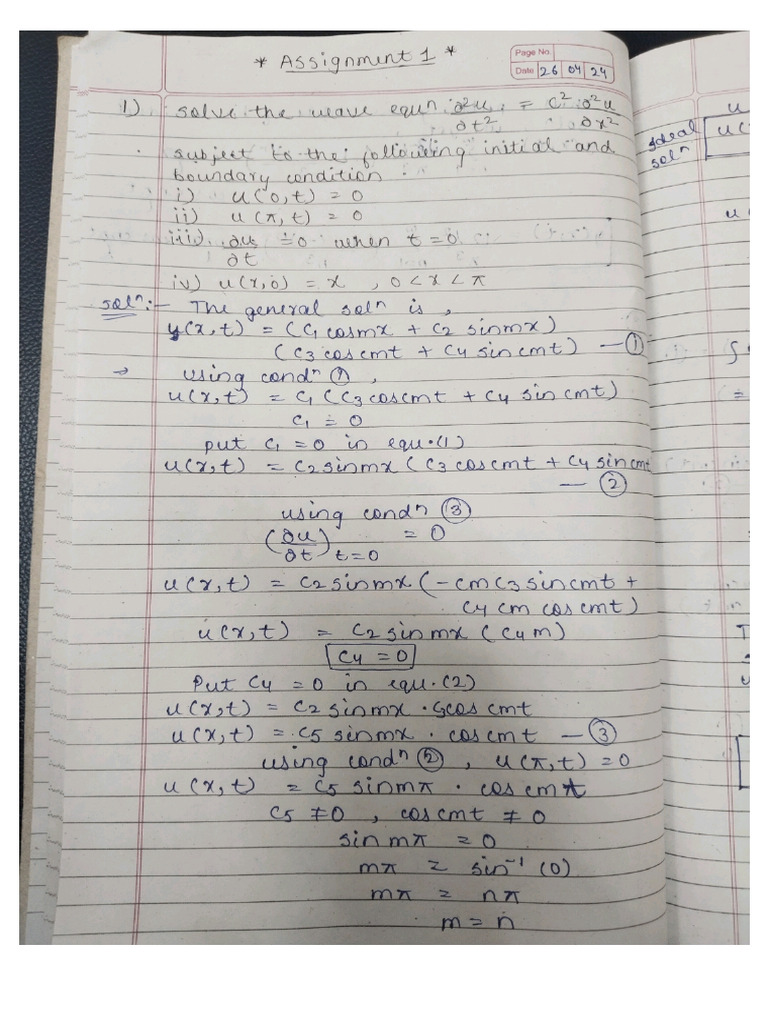 * Assignment 1 *
Page No.
Date 26 04 24
1) solve the wave equⁿ ∂²u/∂t² = c² ∂²u/∂x²
subject to the following initial and
boundary condition
i) u(0,t) = 0
ii) u(π,t) = 0
iii) ∂u/∂t = 0 when t=0
iv) u(x,0) = x , 0<x<π
solⁿ:- The general solⁿ is,
y(x,t) = (C1 cosmx + C2 sinmx)
(C3 coscmt + C4 sin cmt) — ①
→ using condⁿ ①,
u(x,t) = C1 (C3 coscmt + C4 sin cmt)
C1 = 0
put C1 = 0 in equ.(1)
u(x,t) = C2 sinmx (C3 coscmt + C4 sin cmt
— ②
using condⁿ ③
(∂u/∂t) t=0 = 0
u(x,t) = C2 sinmx (-cm C3 sin cmt +
C4 cm cos cmt)
u(x,t) = C2 sin mx (C4 m)
C4 = 0
Put C4 = 0 in equ.(2)
u(x,t) = C2 sinmx · C3 cos cmt
u(x,t) = C5 sinmx · cos cmt — ③
using condⁿ ②, u(π,t) = 0
u(x,t) = C5 sin mπ · cos cmt
C5 ≠ 0 , cos cmt ≠ 0
sin mπ = 0
mπ = sin⁻¹ (0)
mπ = nπ
m = n
Ideal
solⁿ